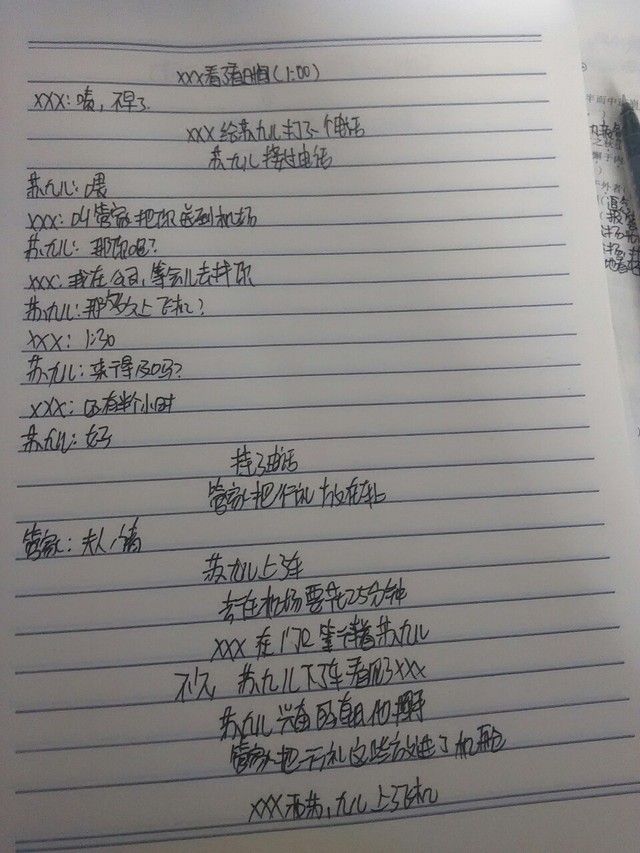 xxx看了看时间(1:00)
xxx:啧,不早了
xxx给苏九儿打了个电话
苏九儿接过电话
苏九儿:喂
xxx:叫管家把你送到机场
苏九儿:那你呢?
xxx:我在公司,等会儿去找你
苏九儿:那多久上飞机?
xxx:1:30
苏九儿:来得及吗?
xxx:还有半个小时
苏九儿:好
挂了电话
管家把行礼放在车上
管家:夫人,请
苏九儿上了车
去在机场要花25分钟
xxx在门口等着苏九儿
不久 苏九儿下了车看见了xxx
苏九儿兴奋的朝他挥手
管家把行礼这些放进了机舱
xxx和苏,九儿上了飞机